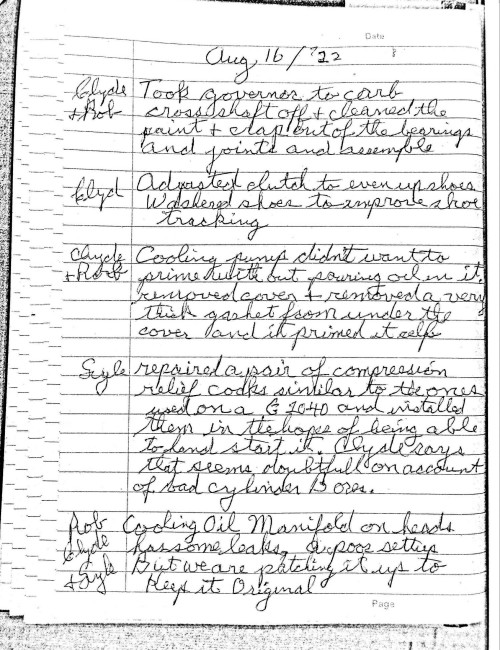 Date
Aug 16/'22
Clyde Took governor to carb
+ Rob cross shaft off + cleaned the
paint + crap out of the bearings
and joints and assemble
Clyd Adjusted clutch to even up shoes
Washered shoes to improve shoe
tracking
Clyde Cooling pump didn't want to
+ Rob prime without pouring oil in it.
removed cover + removed a very
thick gasket from under the
cover and it primed it self
Gyle repaired a pair of compression
relief cocks similar to the ones
used on a G 1040 and installed
them in the hope of being able
to hand start it. Clyde says
that seems doubtfull on account
of bad cylinder Bores.
Rob Cooling Oil Manifold on heads
Clyde has some leaks. a poor settup
+ Gyle But we are patching it up to
Keep it Original
Page